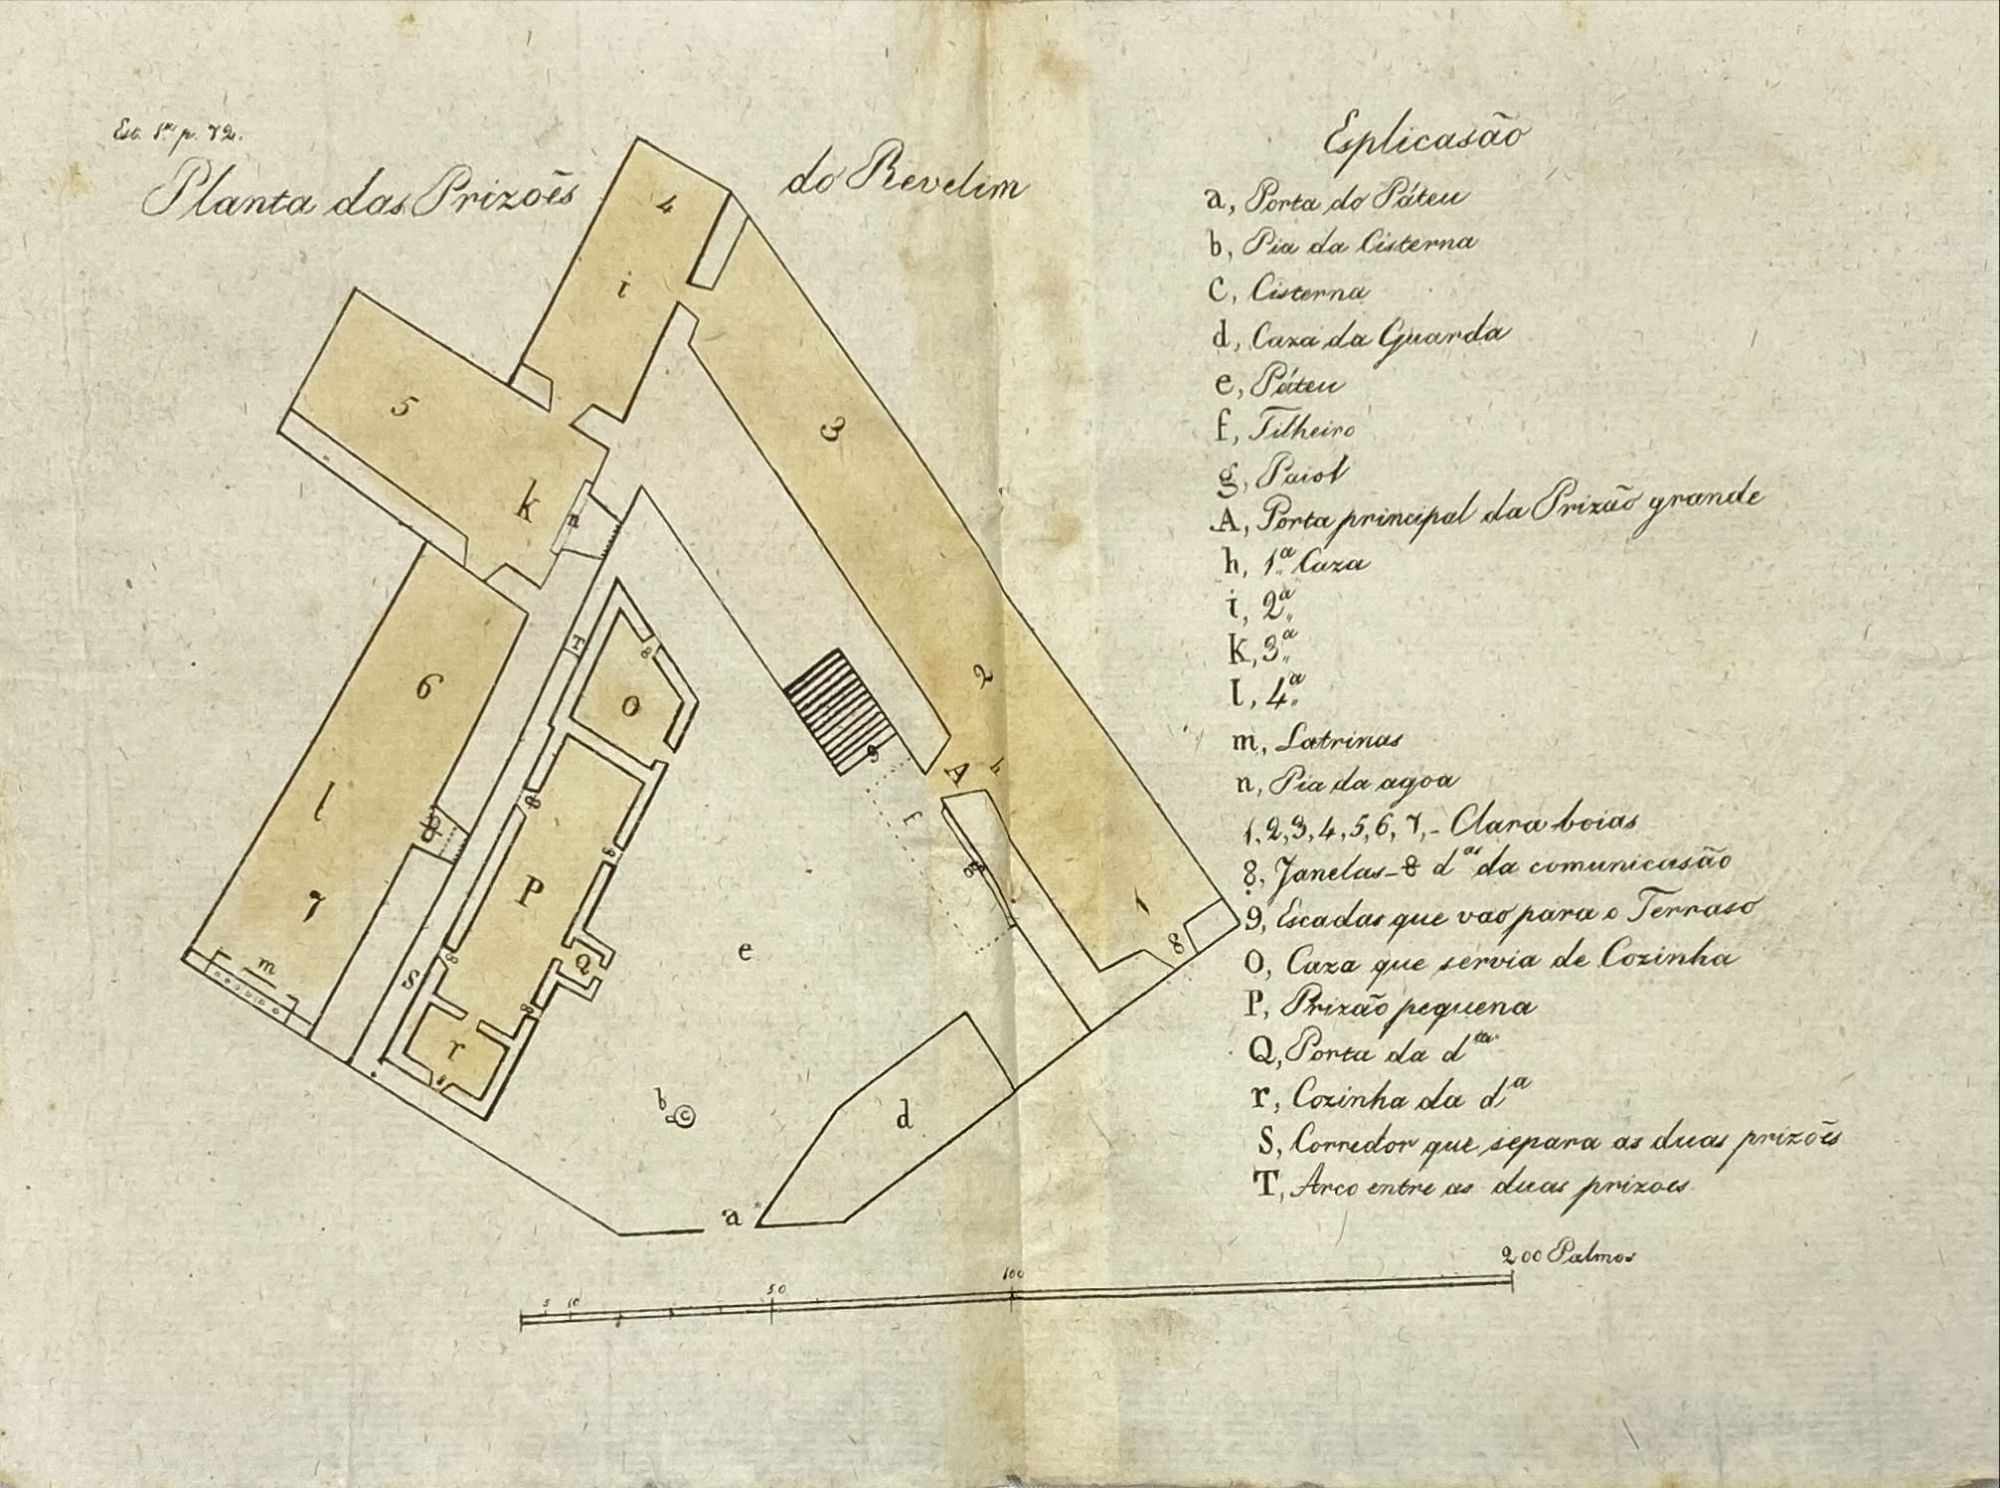 Est. 1ª p. 72.
Planta das Prizoẽs do Revelim
4
i
5
k
n
3
6
T
8
O
2
g
A
h
f
l
8
P
8
7
m
S
8
Q
8
8
e
1
8
r
b
c
d
a
5 10 50 100 200 Palmos
Esplicasão
a, Porta do Páteu
b, Pia da Cisterna
c, Cisterna
d, Caza da Guarda
e, Páteu
f, Tilheiro
g, Paiol
A, Porta principal da Prizão grande
h, 1.ª Caza
i, 2.ª
k, 3.ª
l, 4.ª
m, Latrinas
n, Pia da agoa
1, 2, 3, 4, 5, 6, 7, - Clara boias
8, Janelas - 8 d.as da comunicasão
9, Escadas que vao para o Terraso
O, Caza que servia de Cozinha
P, Prizão pequena
Q, Porta da d.ta
r, Cozinha da d.a
S, Corredor que separa as duas prizoẽs
T, Arco entre as duas prizoes